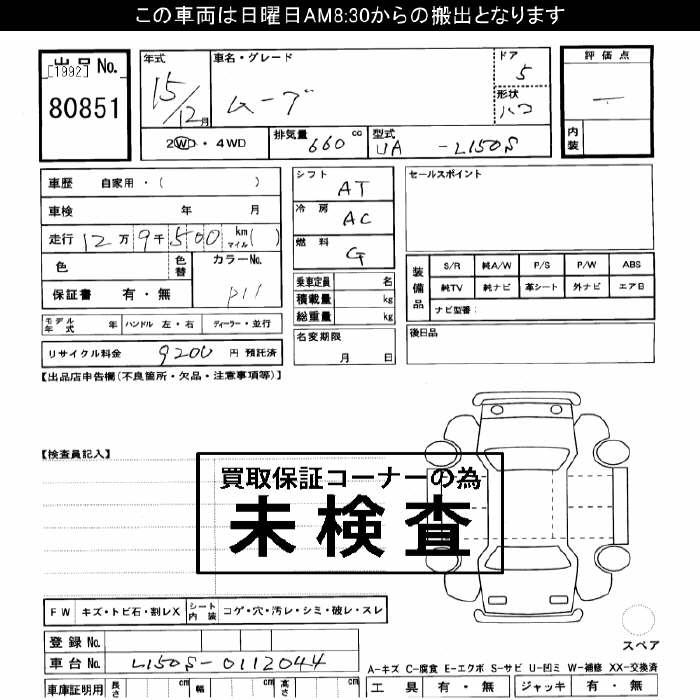 この車両は日曜日AM8:30からの搬出となります
出品No.
[1992]
80851
年式
15/12月
車名・グレード
ムーブ
ドア
5
形状
ハコ
評価点
内装
2WD・4WD
排気量 660 cc
型式 UA -L150S
車歴 自家用・( )
車検 年 月
走行 12万9千500 km マイル( )
色
色替
カラーNo.
P11
保証書 有・無
モデル年式 年 ハンドル 左・右 ディーラー・並行
リサイクル料金 9200 円 預託済
シフト AT
冷房 AC
燃料 G
乗車定員 名
積載量 kg
総重量 kg
名変期限
月 日
セールスポイント
装備品
S/R 純A/W P/S P/W ABS
純TV 純ナビ 革シート 外ナビ エアB
ナビ型番:
後日品
【出品店申告欄(不良箇所・欠品・注意事項等)】
【検査員記入】
買取保証コーナーの為
未検査
FW キズ・トビ石・割レX シート内装 コゲ・穴・汚レ・シミ・破レ・スレ
登録No.
車台No. L150S-0112044
車庫証明用 長さ cm 幅 cm 高さ cm
スペア
A-キズ C-腐食 E-エクボ S-サビ U-凹ミ W-補修 XX-交換済
工具 有・無 ジャッキ 有・無